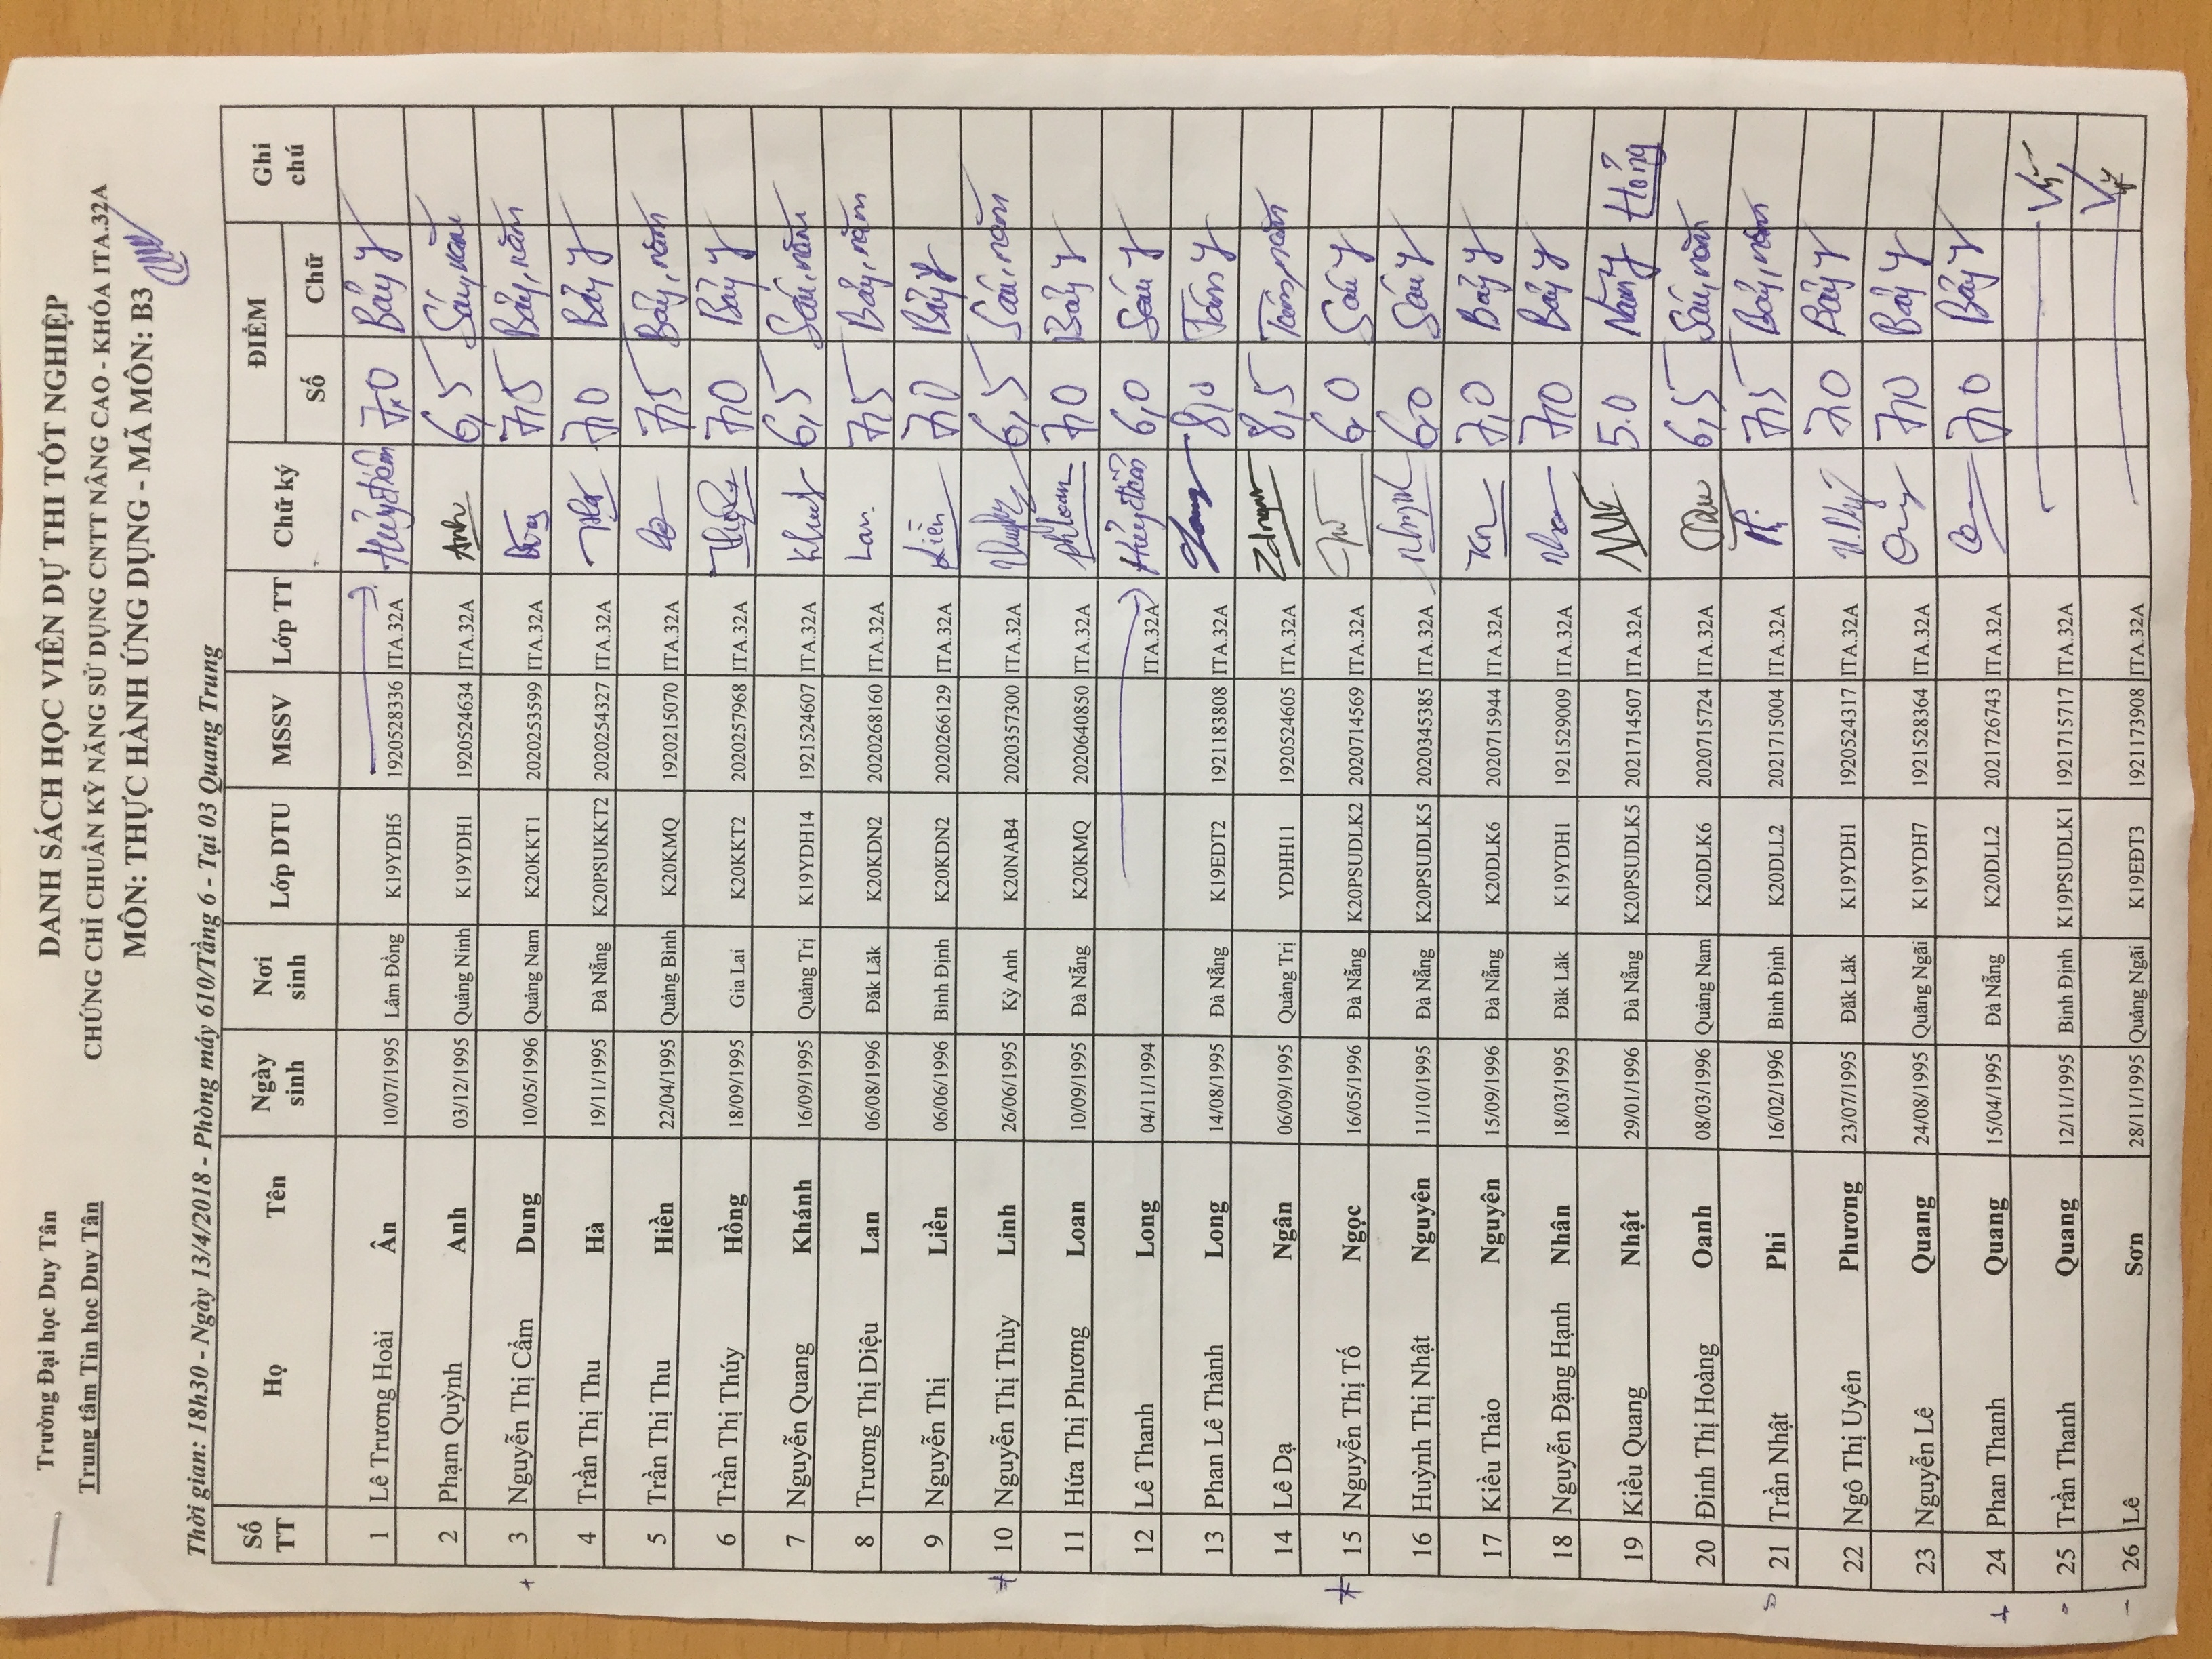 Trường Đại học Duy Tân
Trung tâm Tin học Duy Tân
DANH SÁCH HỌC VIÊN DỰ THI TỐT NGHIỆP
CHỨNG CHỈ CHUẨN KỸ NĂNG SỬ DỤNG CNTT NÂNG CAO - KHÓA ITA.32A
MÔN: THỰC HÀNH ỨNG DỤNG - MÃ MÔN: B3
Thời gian: 18h30 - Ngày 13/4/2018 - Phòng máy 610/Tầng 6 - Tại 03 Quang Trung
Số TT Họ Tên Ngày sinh Nơi sinh Lớp DTU MSSV Lớp TT Chữ ký ĐIỂM Ghi chú
Số Chữ
1 Lê Trương Hoài Ân 10/07/1995 Lâm Đồng K19YDH5 1920528336 ITA.32A 7.0 Bảy
2 Phạm Quỳnh Anh 03/12/1995 Quảng Ninh K19YDH1 1920524634 ITA.32A Anh 6,5 Sáu, năm
3 Nguyễn Thị Cẩm Dung 10/05/1996 Quảng Nam K20KKT1 2020253599 ITA.32A 7,5 Bảy, năm
4 Trần Thị Thu Hà 19/11/1995 Đà Nẵng K20PSUKKT2 2020254327 ITA.32A 7,0 Bảy
5 Trần Thị Thu Hiền 22/04/1995 Quảng Bình K20KMQ 1920215070 ITA.32A 7,5 Bảy, năm
6 Trần Thị Thúy Hồng 18/09/1995 Gia Lai K20KKT2 2020257968 ITA.32A 7,0 Bảy
7 Nguyễn Quang Khánh 16/09/1995 Quảng Trị K19YDH14 1921524607 ITA.32A 6,5 Sáu, năm
8 Trương Thị Diệu Lan 06/08/1996 Đăk Lăk K20KDN2 2020268160 ITA.32A Lan. 7,5 Bảy, năm
9 Nguyễn Thị Liền 06/06/1996 Bình Định K20KDN2 2020266129 ITA.32A Liền 7,0 Bảy
10 Nguyễn Thị Thùy Linh 26/06/1995 Kỳ Anh K20NAB4 2020357300 ITA.32A 6,5 Sáu, năm
11 Hứa Thị Phương Loan 10/09/1995 Đà Nẵng K20KMQ 2020640850 ITA.32A phloan 7,0 Bảy
12 Lê Thanh Long 04/11/1994 ITA.32A 6,0 Sáu
13 Phan Lê Thành Long 14/08/1995 Đà Nẵng K19EDT2 1921183808 ITA.32A 8,0 Tám
14 Lê Dạ Ngân 06/09/1995 Quảng Trị YDHH11 1920524605 ITA.32A 8,5 Tám, năm
15 Nguyễn Thị Tố Ngọc 16/05/1996 Đà Nẵng K20PSUDLK2 2020714569 ITA.32A 6,0 Sáu
16 Huỳnh Thị Nhật Nguyên 11/10/1995 Đà Nẵng K20PSUDLK5 2020345385 ITA.32A 6,0 Sáu
17 Kiều Thảo Nguyên 15/09/1996 Đà Nẵng K20DLK6 2020715944 ITA.32A 7,0 Bảy
18 Nguyễn Đặng Hạnh Nhân 18/03/1995 Đăk Lăk K19YDH1 1921529009 ITA.32A 7,0 Bảy
19 Kiều Quang Nhật 29/01/1996 Đà Nẵng K20PSUDLK5 2021714507 ITA.32A 5.0 Năm Hỏng
20 Đinh Thị Hoàng Oanh 08/03/1996 Quảng Nam K20DLK6 2020715724 ITA.32A 6,5 Sáu, năm
21 Trần Nhật Phi 16/02/1996 Bình Định K20DLL2 2021715004 ITA.32A 7,5 Bảy, năm
22 Ngô Thị Uyên Phương 23/07/1995 Đăk Lăk K19YDH1 1920524317 ITA.32A 7,0 Bảy
23 Nguyễn Lê Quang 24/08/1995 Quãng Ngãi K19YDH7 1921528364 ITA.32A 7,0 Bảy
24 Phan Thanh Quang 15/04/1995 Đà Nẵng K20DLL2 2021726743 ITA.32A 7,0 Bảy
25 Trần Thanh Quang 12/11/1995 Bình Định K19PSUDLK1 1921715717 ITA.32A
26 Lê Sơn 28/11/1995 Quảng Ngãi K19EĐT3 1921173908 ITA.32A